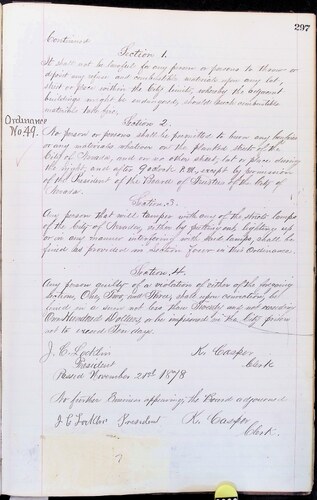 297
Continued
Section 1.
It shall not be lawful for any person or persons to throw or
deposit any open and combustible materials upon any lot,
street or place within the City limits, whereby the adjacent
buildings might be endangered, should such combustible
materials take fire.
Ordinance
No. 49.
Section 2.
No person or persons shall be permitted to burn any
or any materials whatever on the planked streets of the
City of Nevada, and in no other street, lot or place during
the night, and after 9 o'clock P.M, except by permission
of the President of the Board of Trustees of the City of
Nevada.
Section 3.
Any person that will tamper with any of the street lamps
of the City of Nevada, either by putting out, lighting up
or in any manner interfering with said lamps, shall be
fined as provided in section Four in this Ordinance.
Section 4.
Any person guilty of a violation of either of the foregoing
sections, One, Two, and Three, shall upon conviction, be
fined in a sum not less than Twenty and not exceeding
One Hundred Dollars or be imprisoned in the City prison
not to exceed Ten days.
J. C. Locklin
President
K. Casper
Clerk
Passed November 21st 1878
No further Business appearing the Board adjourned
J C Locklin President
K. Casper
Clerk.